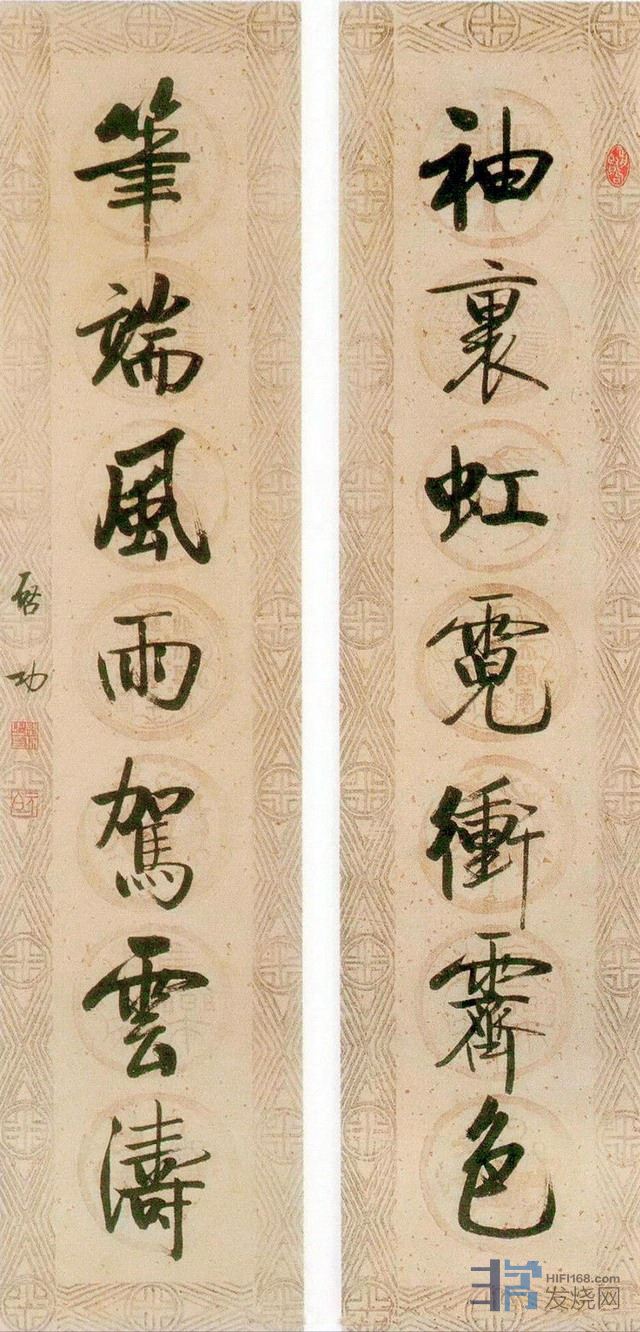 袖裏虹霓衝霽色
筆端風雨駕雲濤
啓功
HIFI168.com
发烧网